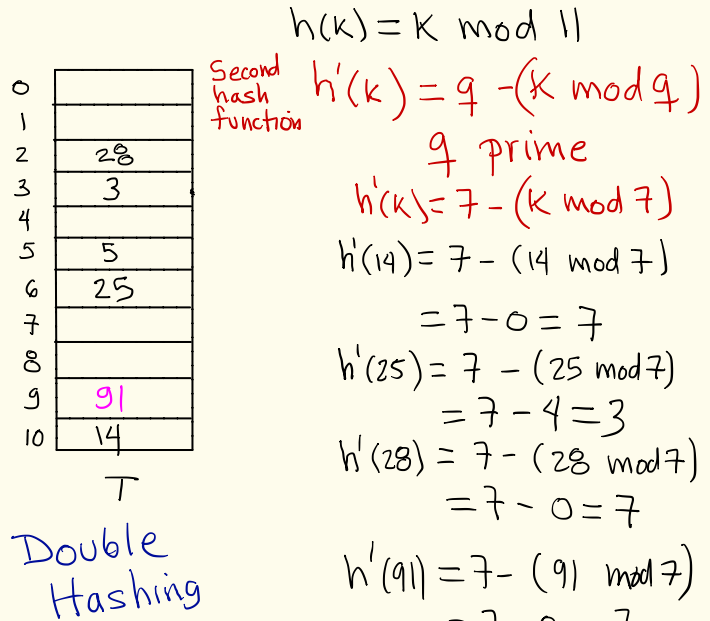 h(k) = k mod 11
Second
hash
function
h'(k) = q - (k mod q)
q prime
h'(k) = 7 - (k mod 7)
h'(14) = 7 - (14 mod 7)
= 7 - 0 = 7
h'(25) = 7 - (25 mod 7)
= 7 - 4 = 3
h'(28) = 7 - (28 mod 7)
= 7 - 0 = 7
h'(91) = 7 - (91 mod 7)
0
1
2 28
3 3
4
5 5
6 25
7
8
9 91
10 14
T
Double
Hashing